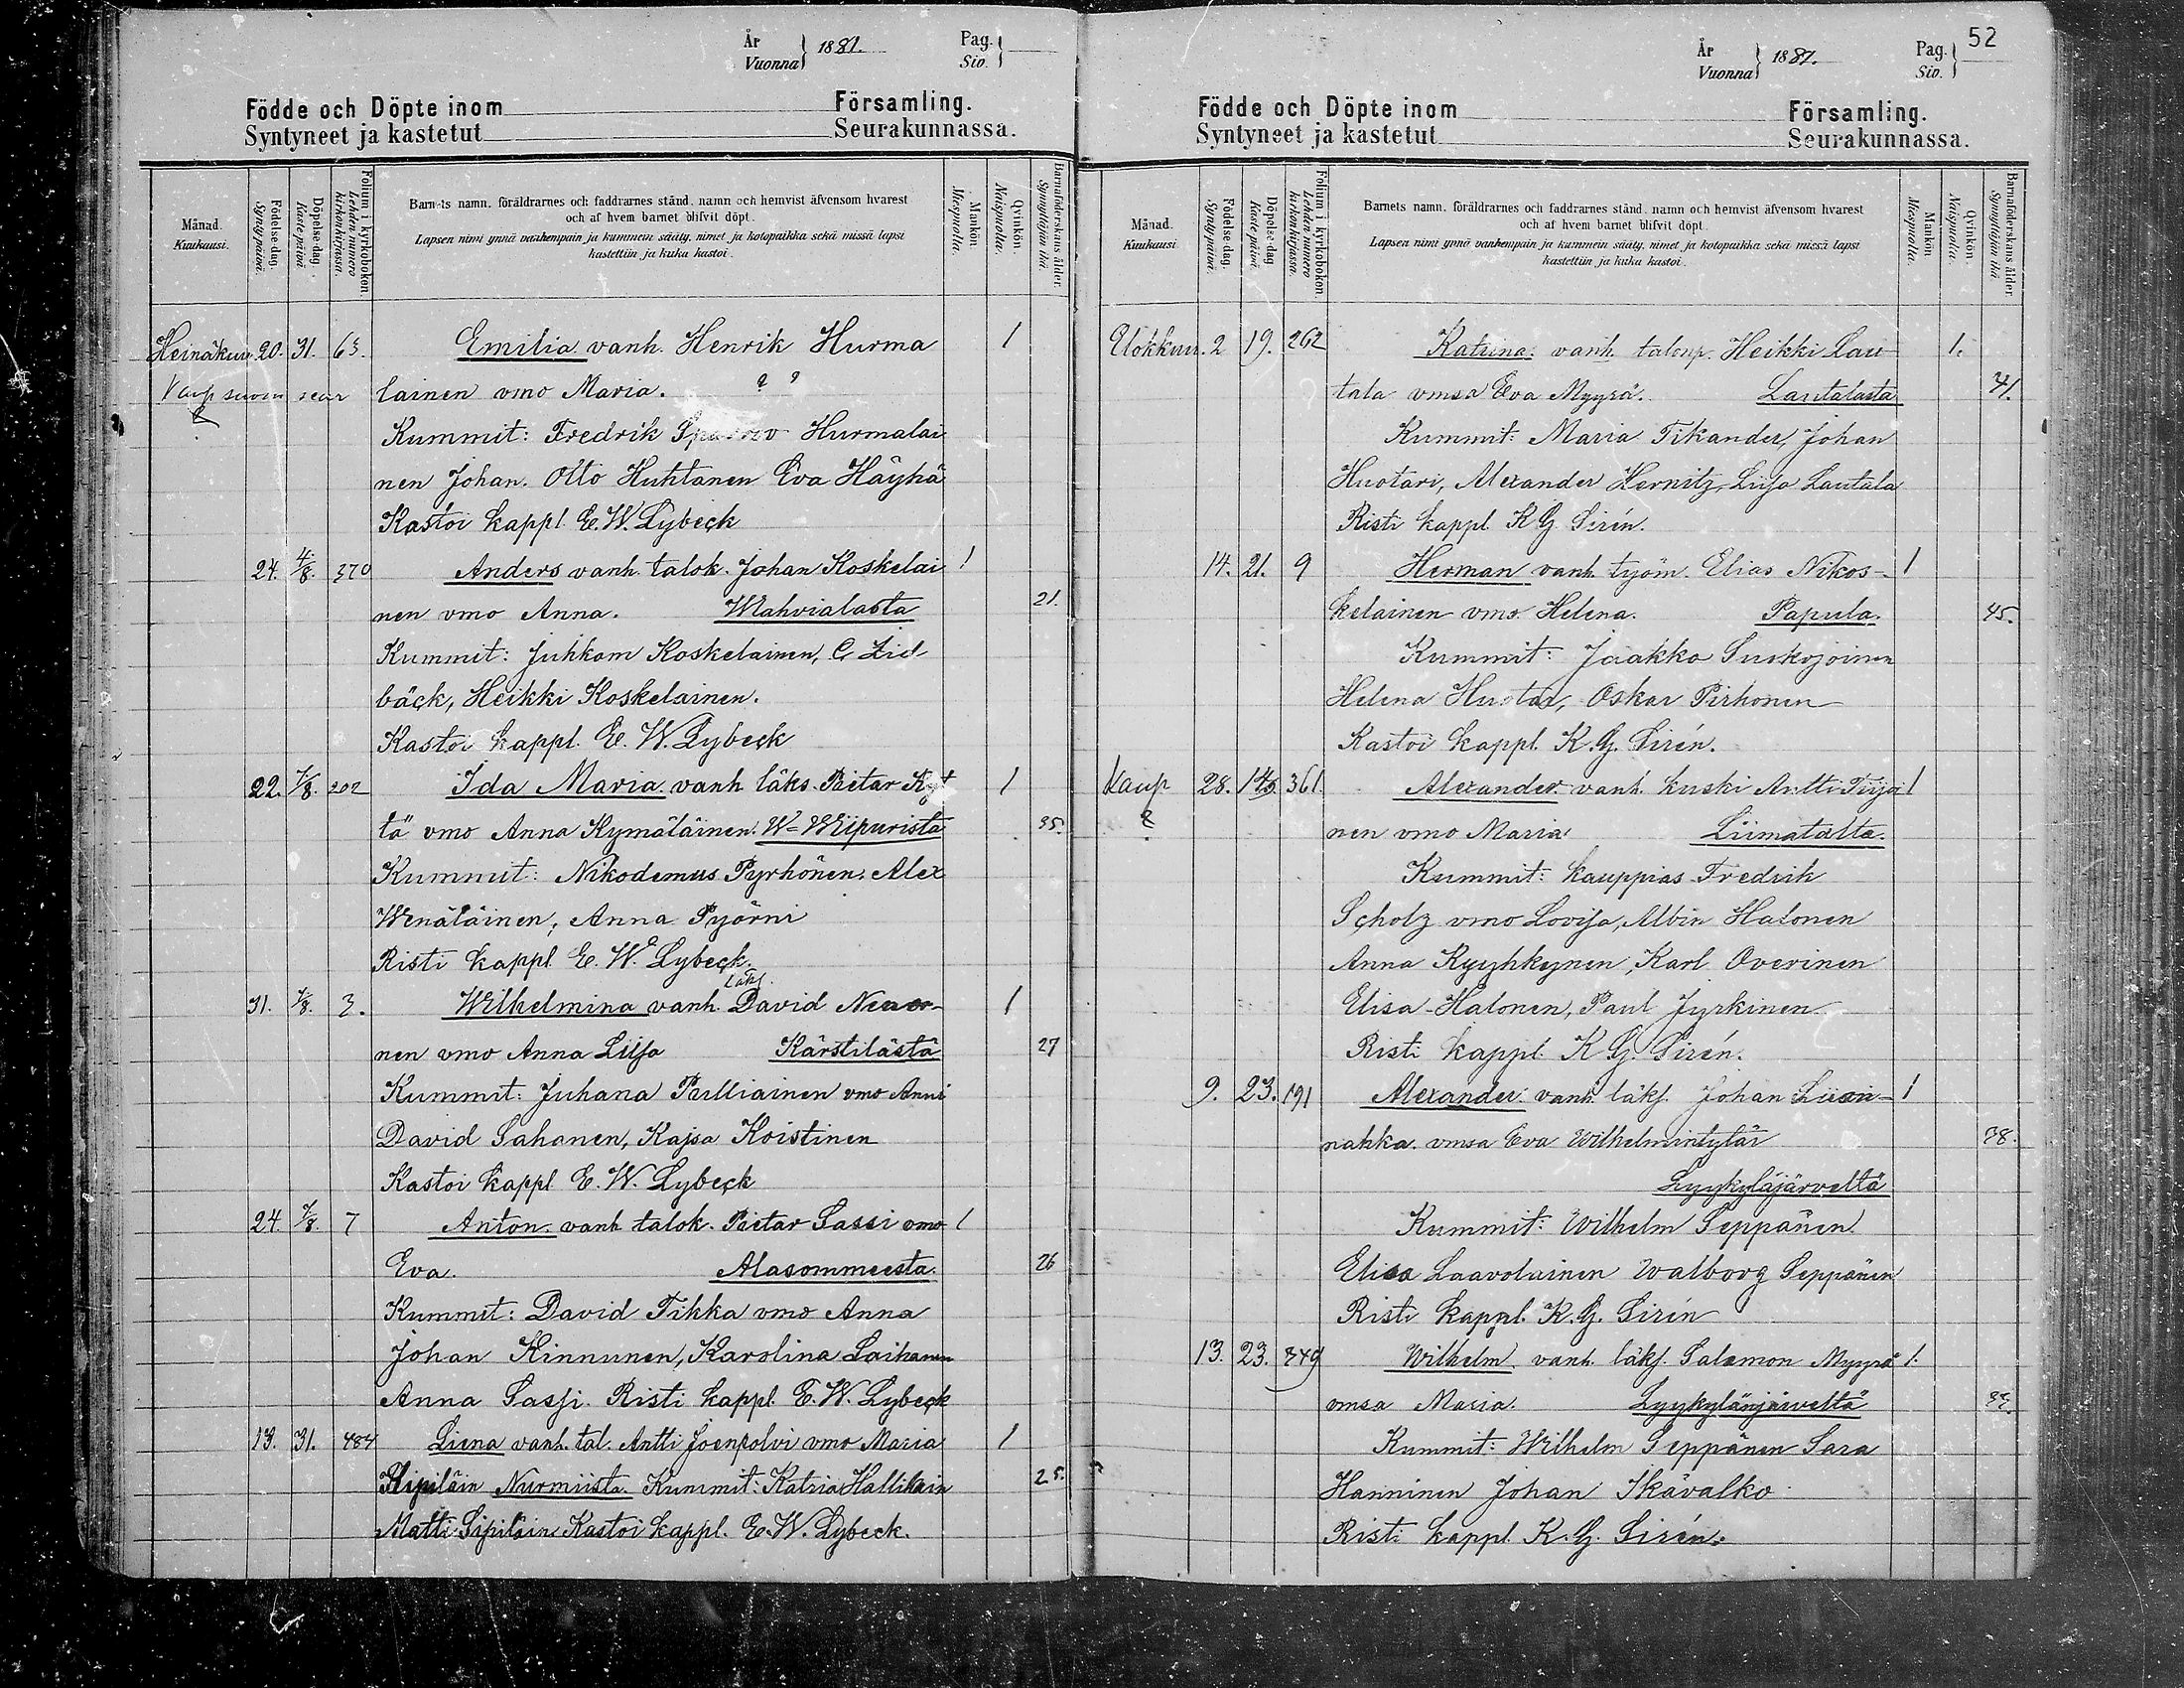 År
Vuonna
1881.
Pag.
Siv.
Födde och Döpte inom Församling.
Syntyneet ja kastetut Seurakunnassa.
Månad.
Kuukausi.
Födelse dag.
Synty päivä.
Döpelse dag.
Kaste päivä
Folium i kyrkoboken.
Lehden numero kirkonkirjassa.
Barnets namn, föräldrarnes och faddrarnes stånd, namn och hemvist äfvensom hvarest
och af hvem barnet blifvit döpt.
Lapsen nimi ynnä vanhempain ja kummein sääty, nimet ja kotopaikka sekä missä lapsi
kastettiin ja kuka kastoi.
Mankön.
Miespuolia.
Qvinkön.
Naispuolia.
Barnaföderskans ålder.
Synnyttäjän ikä.
Heinäkuu 20. 31. 63. Emilia vanh. Henrik Hurma 1
Kaup suom seur lainen vmo Maria. ? ?
Kummit: Fredrik Hurmalai
nen Johan. Otto Huhtanen Eva Häyhä
Kastoi kappl. E. W. Lybeck
24. 4/8. 370 Anders vanh. talok. Johan Koskelai 1
nen vmo Anna. Mahvialasta 21.
Kummit: Juhkom Koskelainen, C Lid
bäck, Heikki Koskelainen.
Kastoi kappl. E. W. Lybeck
22. 7/8. 202 Ida Maria vanh läks. Pietar Kyt 1
tä vmo Anna Kymäläinen. W= Wiipurista 35.
Kummit: Nikodemus Pyrhönen. Alex
Wenäläinen, Anna Pyörni
Risti kappl. E. W. Lybeck.
läks.
31. 7/8. 3. Wilhelmina vanh. David 1
nen vmo Anna Liisa Kärstilästä 27
Kummit: Juhana Pulliainen vmo Anni
David Sahanen, Kajsa Koistinen
Kastoi kappl E. W. Lybeck
24. 7/8. 7 Anton vanh talok. Pietar Sassi vmo 1
Eva. Alasommeesta. 26
Kummit: David Tikka vmo Anna
Johan Kinnunen, Karolina Laihanen
Anna Sassi. Risti kappl. E. W. Lybeck
13. 31. 484 Liena vanh. tal. Antti Joenpolvi vmo Maria 1
Nurmiista. Kummit: Katria Hallikain 25.
Matti Sipiläin Kastoi kappl. E. W. Lybeck.
52
År
Vuonna
1881.
Pag.
Siv.
Födde och Döpte inom Församling.
Syntyneet ja kastetut Seurakunnassa.
Månad.
Kuukausi.
Födelse dag.
Synty päivä.
Döpelse dag
Kaste päivä.
Folium i kyrkoboken
Lehden numero kirkonkirjassa.
Barnets namn, föräldrarnes och faddrarnes stånd, namn och hemvist äfvensom hvarest
och af hvem barnet blifvit döpt.
Lapsen nimi ynnä vanhempain ja kummein sääty, nimet ja kotopaikka sekä missä lapsi
kastettiin ja kuka kastoi.
Mankön
Miespuolia.
Qvinkön
Naispuolia.
Barnaföderskans ålder
Synnyttäjän ikä.
Elokkuu. 2 19. 262 Katrina. vanh. talonp. Heikki Lau 1.
tala vmsa Eva Myyrä. Lautalasta 41.
Kummit: Maria Tikander, Johan
Huotari, Alexander Hernitz, Liisa Lautala
Risti kappl. K G Sirén.
14. 21. 9 Herman vanh. työm. Elias Nikos- 1
kelainen vmo Helena. Papula. 45.
Kummit: Jaakko Suskojoinen
Helena Huotar, Oskar Pirhonen
Kastoi kappl. K. G. Sirén.
Kaup 28. 361. Alexander vanh. kuski Antti Tiijoi 1
nen vmo Maria Liimatalta.
Kummit: kauppias Fredrik
Scholz vmo Lovisa, Albin Halonen
Anna Kyyhkynen, Karl Overinen
Elisa Halonen, Paul Jyrkinen
Risti kappl. K G. Sirén.
9. 23. 191 Alexander vanh. läks. Johan Liisi- 1
nahka. vmsa Eva Wilhelmintytär 38.
Lyykyläjärveltä
Kummit: Wilhelm Seppänen
Elisa Laavolainen Walborg Seppänen
Risti kappl. K. G. Sirén
13. 23. 349 Wilhelm vanh. läks. Salomon Myyrä 1.
vmsa Maria. Lyykylänjärveltä 33.
Kummit: Wilhelm Seppänen Sara
Hanninen Johan Ikävalko
Risti kappl. K. G. Sirén.